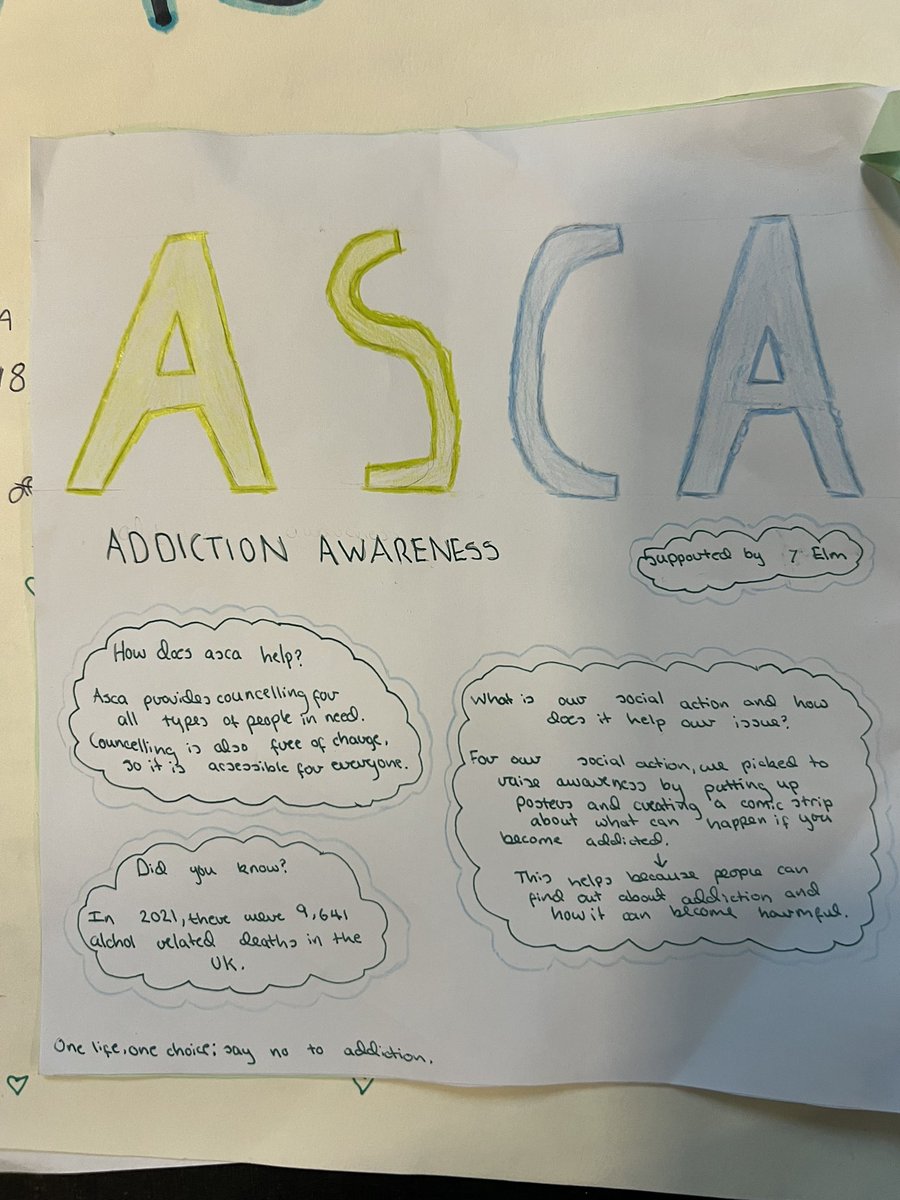 A
18
of
ASCA
ADDICTION AWARENESS
Supported by 7 Elm
How does asca help?
Asca provides councelling for
all types of people in need.
Councelling is also free of charge,
so it is assessible for everyone.
What is our social action and how
does it help our issue?
For our social action, we picked to
raise awareness by putting up
posters and creating a comic strip
about what can happen if you
become addicted.
↓
This helps because people can
find out about addiction and
how it can become harmful.
Did you know?
In 2021, there were 9,641
alchol related deaths in the
UK.
One life, one choice; say no to addiction.